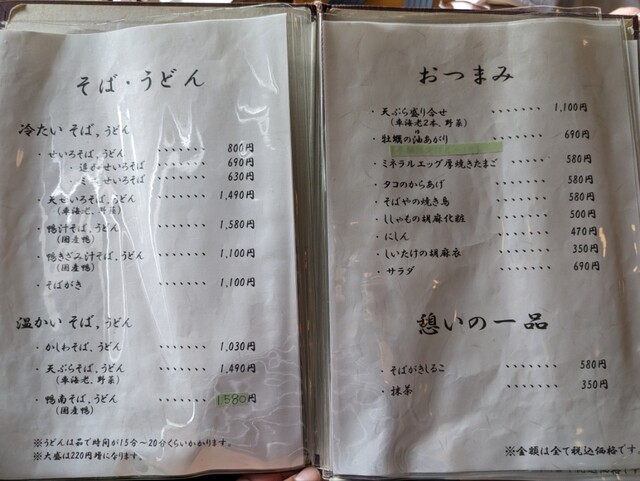 そば・うどん
冷たい そば、うどん
・せいろそば、うどん ‥‥‥ 800円
・追加せいろそば ‥‥‥ 690円
せいろそば ‥‥‥ 630円
・天せいろそば、うどん ‥‥‥ 1,490円
(車海老、野菜)
・鴨汁そば、うどん ‥‥‥ 1,580円
(国産鴨)
・鴨きざみ汁そば、うどん ‥‥‥ 1,100円
(国産鴨)
・そばがき ‥‥‥ 1,100円
温かい そば、うどん
・かしわそば、うどん ‥‥‥ 1,030円
・天ぷらそば、うどん ‥‥‥ 1,490円
(車海老、野菜)
・鴨南そば、うどん ‥‥‥ 1580円
(国産鴨)
※うどんは茹で時間が15分~20分くらいかかります。
※大盛は220円増になります。
おつまみ
・天ぷら盛り合せ ‥‥‥ 1,100円
(車海老2本、野菜)
・牡蠣の油あがり ‥‥‥ 690円
・ミネラルエッグ厚焼きたまご ‥‥‥ 580円
・タコのからあげ ‥‥‥ 580円
・そばやの焼き鳥 ‥‥‥ 580円
・ししゃもの胡麻化粧 ‥‥‥ 500円
・にしん ‥‥‥ 470円
・しいたけの胡麻衣 ‥‥‥ 350円
・サラダ ‥‥‥ 690円
憩いの一品
・そばがきしるこ ‥‥‥ 580円
・抹茶 ‥‥‥ 350円
※金額は全て税込価格です。